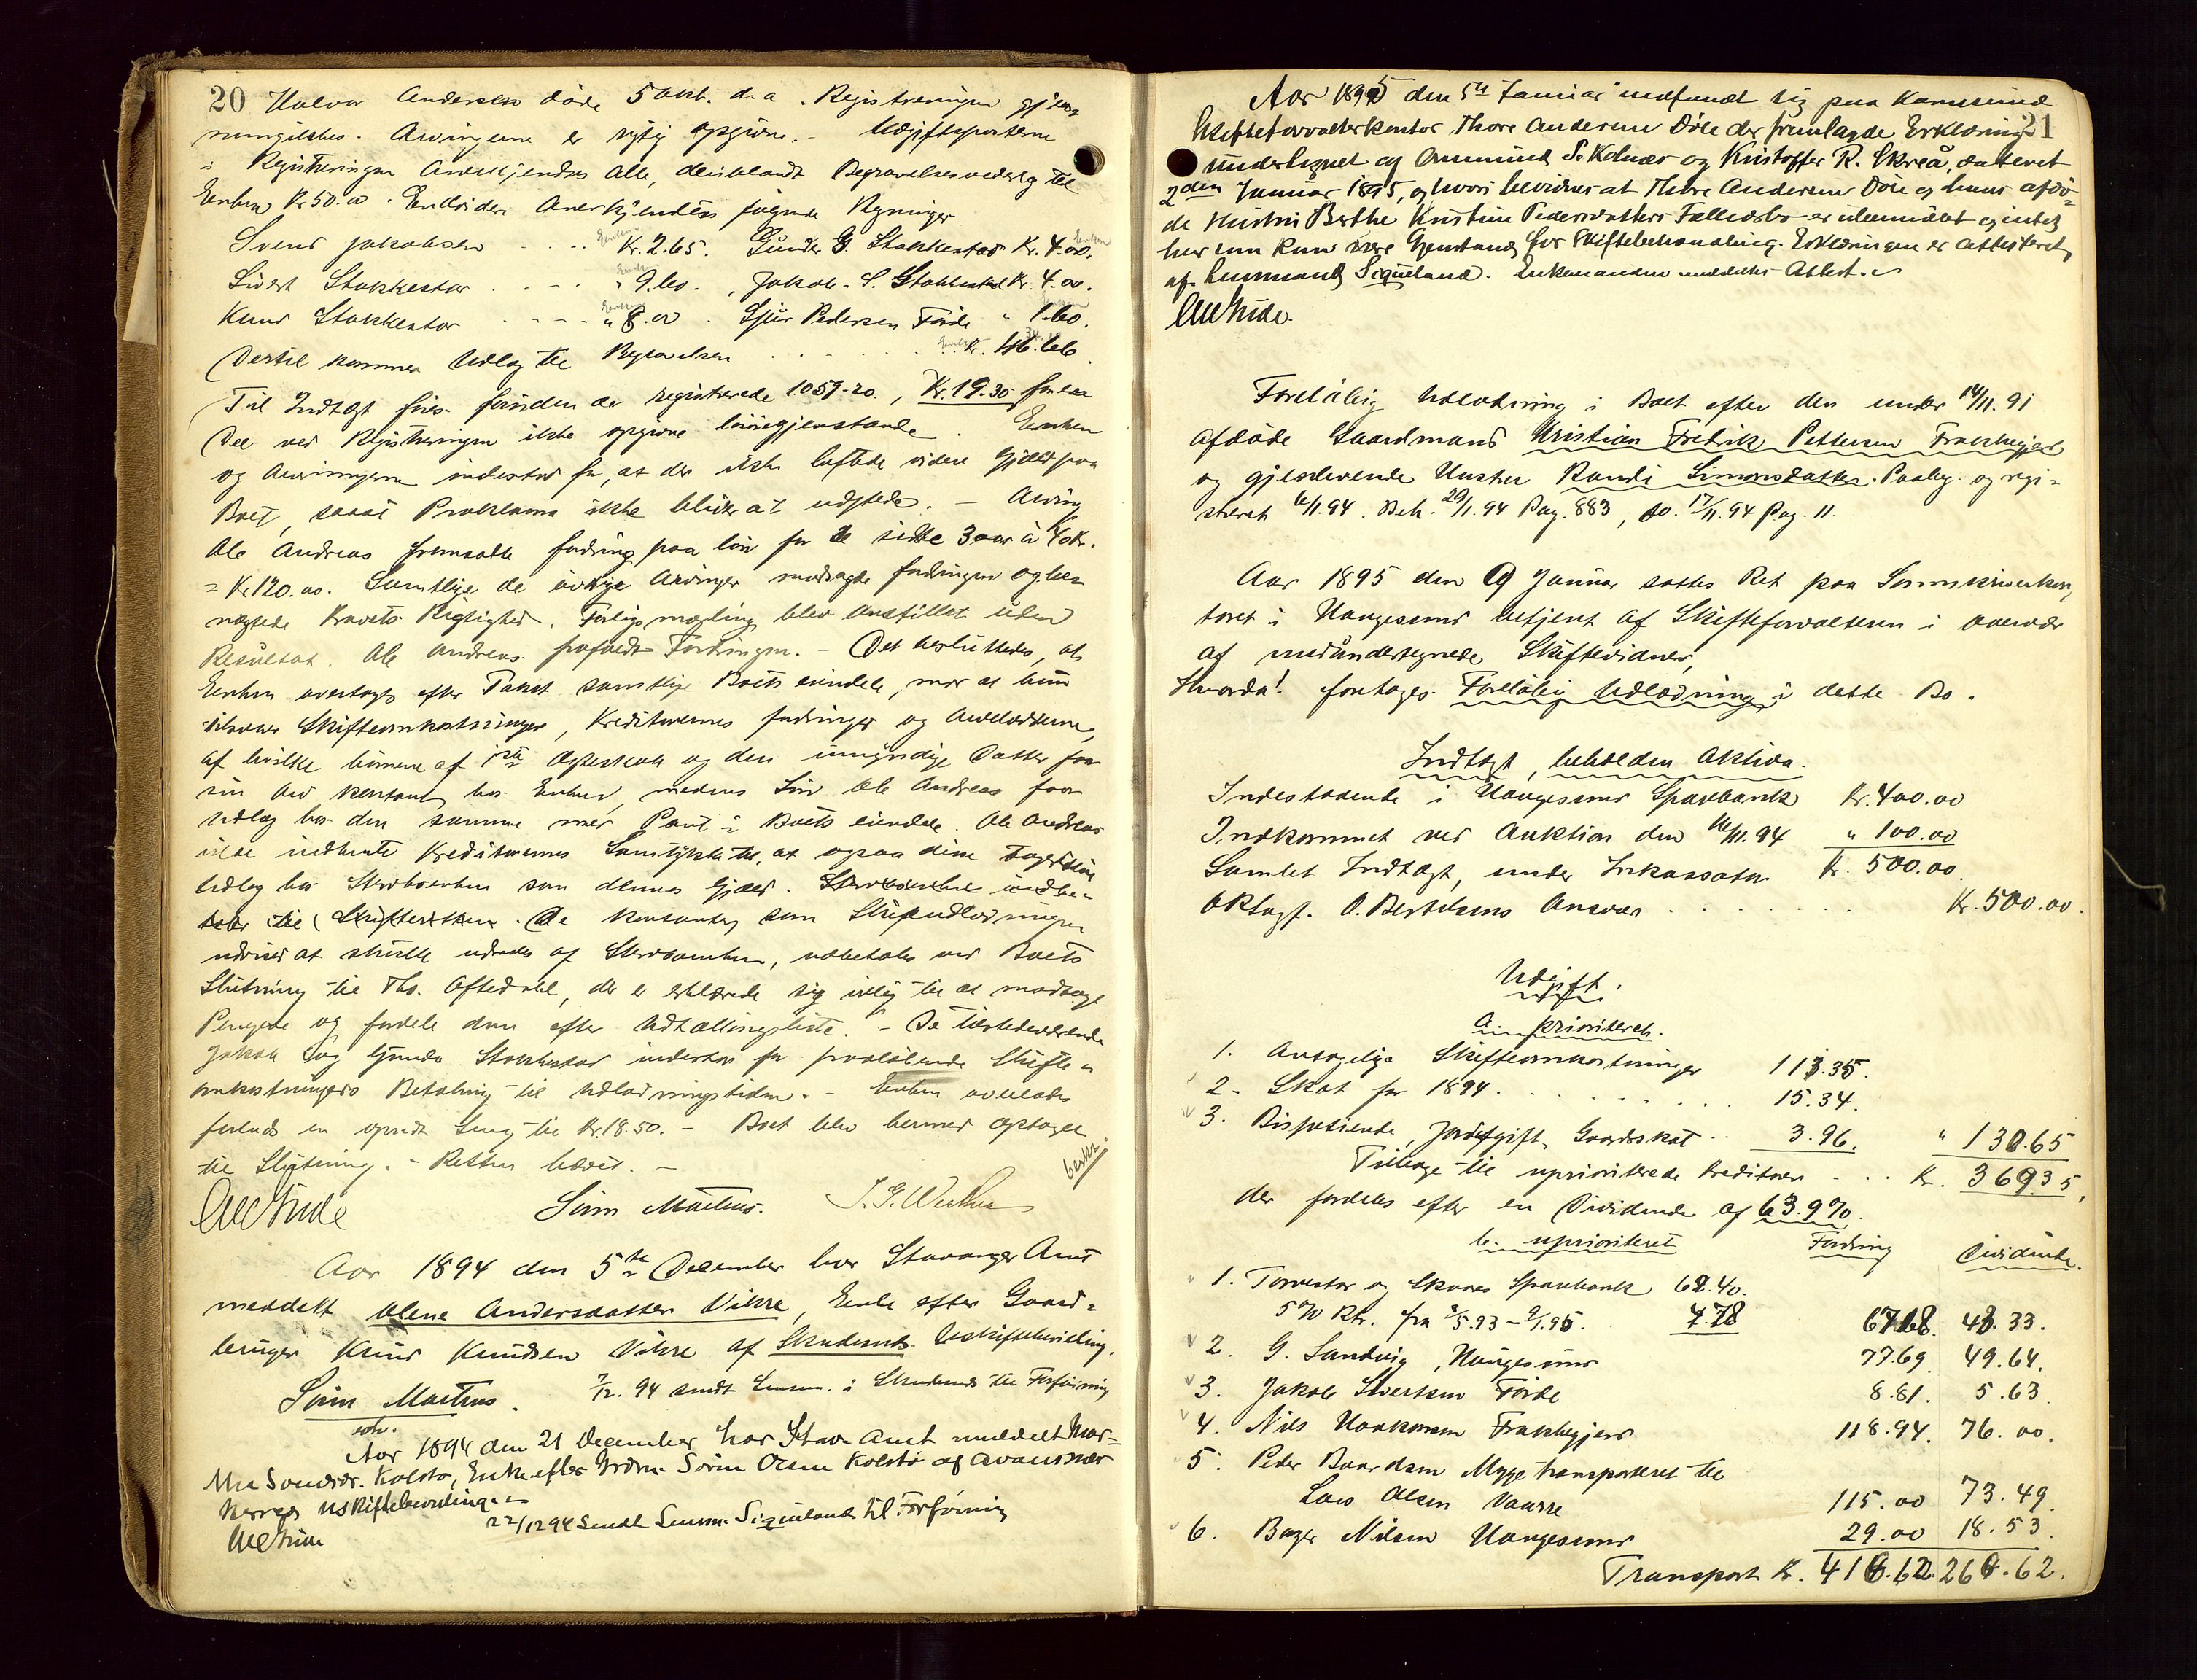 20 Halvor Andersen døde 5 Okt. d.a. Registreringen gjen-
nemgikkes. Arvingerne er rigtig opgivne. - Udgiftsposterne
i Registreringen Anerkjendtes alle, deriblandt Begravelsesvederlag til
Enken Kr 50.00. Endvidere Anerkjendtes følgende Regninger
Svend Jakobsen . . . Kr. 2.65. Gunder G. Stakkestad Kr. 4.00.
Sivert Stakkestad . . . " 9.60. Jakob S. Stakkestad Kr. 4.00.
Knud Stakkestad . . . " 8.00. Sjur Pedersen Førde " 1.60.
Dertil kommer Udlæg til Begravelsen . . . Kr. 46.66.
Til Indtægt føres foruden de registrerede 1059.20, Kr. 19.30 for en
Del ved Registreringen ikke opgivne løsøregjenstande. Enken
og Arvingerne indestod for, at der ikke heftede videre Gjæld paa
Boet, saaat Proklama ikke bliver at udstede. - Arving
Ole Andreas fremsatte fordring paa løn for de sidste 3 aar à 40 Kr.
= Kr 120.00. Samtlige de øvrige Arvinger modsagde fordringen og be-
nægtede Kravets Rigtighed. Forligsmægling blev anstillet uden
Resultat. Ole Andreas frafaldt Fordringen. - Det besluttedes, at
Enken overtager efter Takst samtlige Boets eiendele, mod at hun
tilsvarer Skifteomkostninger, Kreditorernes fordringer og Arvelodderne,
af hvilke børnene af 1ste Ægteskab og den umyndige Datter faar
sin Arv kontant hos Enken, medens Søn Ole Andreas faar
udlæg hos den samme med Pant i Boets eiendele. Ole Andreas
vilde indhente Kreditorernes Samtykke til, at ogsaa disse
Udlæg hos Stervboenken som dennes Gjæld. Stervboenken indbe-
taler til Skifteretten. De kontanter, som Skifteudlodningen
udviser at skulle udredes af Stervboenken, udbetales ved Boets
Slutning til Ths. Aftedahl, der er erklærede sig villig til at modtage
Pengene og fordele dem efter Udtællingsliste. - De tilstedeværende
Jakob og Gunder Stakkestad indestod for paaløbende Skifte-
omkostningers Betaling til Udlodningstiden. - Enken overlodes
forlods en opredt Seng til Kr. 18.50. - Boet blev hermed Optaget
til Slutning. - Retten hævet. -
Sørn Mæhus. J. G. Wathne
Aar 1894 den 5te December har Stavanger Amt
meddelt Olene Andersdatter Vikre, Enke efter Gaard-
bruger Knud Knudsen Vikre af Skudesnes Uskiftebevilling.
7/12. 94 sendt Lensm. i Skudesnes til Forføining
Sørn Mæhus.
Aar 1894 den 21 December har Stav. Amt meddelt Mar-
tha Sondresdr. Kolstø, Enke efter Grdm. Søren Olsen Kolstø af Avaldsnæs
Herred Uskiftebevilling.
22/12 94 Sendt Lensm. Siqueland til Forføining

21
Aar 1895 den 5te Januar indfandt sig paa Karmsund
Skifteforvalterkontor Thore Andersen Døle der fremlagde Erklæring
underlagnet af Ommund S. Kolnæs og Kristoffer R. Skreå, dateret
2den Januar 1895, og hvori bevidnes at Thore Andersen Døle og hans afdø-
de Hustru Berthe Kristine Pedersdatters Fællesbo er ubemidlet og intet
her som kan være Gjenstand for Skiftebehandling. Erklæringen er attesteret
af Lensmand Siqueland. Enkemanden meddeltes Attest.

Foreløbig Udlodning i Boet efter den under 14/11. 91
afdøde Gaardmand Kristian Fredrik Pettersen Frakkegjerd
og gjenlevende Hustru Randi Simonsdatter. Paabeg. og regi-
streret 6/11.94. Beh. 29/1.94 Pag. 883, do. 17/11.94 Pag. 11.

Aar 1895 den 9 Januar sattes Ret paa Sorenskriverkon-
toret i Haugesund betjent af Skifteforvalteren i overvær
af medundertegnede Skiftevidner,
Hvorda! foretages Foreløbig Udlodning i dette Bo.

Indtægt, beholden Aktiva.
Indestaaende i Haugesunds Sparebank Kr. 400.00
Indkommet ved Auktion den 16/11.94 " 100.00
Samlet Indtægt, under Inkassator Kr. 500.00
O. Bertelsens Ansvar . . . . . Kr. 500.00.

Udgift.
a. prioriteret.
1. Antagelige Skifteomkostninger 111.35.
2. Skat for 1894 . . . . . 15.34.
3. Bispetiende, Jordafgift, Gaardskat .. 3.96. " 130.65
Tilbage til uprioriterede Kreditorer . . . Kr. 369.35,
der fordeles efter en Dividende af 63.9%.
b. uprioriteret Fordring Dividende.
1. Torvestad og Skaare Sparebank 62.40.
5% Rtr. fra 2/5.93 - 9/1.95. 4.78 67.18. 43.33.
2. G. Sandvig, Haugesund 77.69. 49.64.
3. Jakob Sivertsen Førde 8.81. 5.63
4. Nils Haakonsen Frakkegjerd 118.94. 76.00.
5. Peder Baardsen Mygge transporteret til
Lars Olsen Vaarre 115.00 73.49.
6. Bager Nilsen Haugesund 29.00 18.53.
Transport Kr. 416.62 266.62.